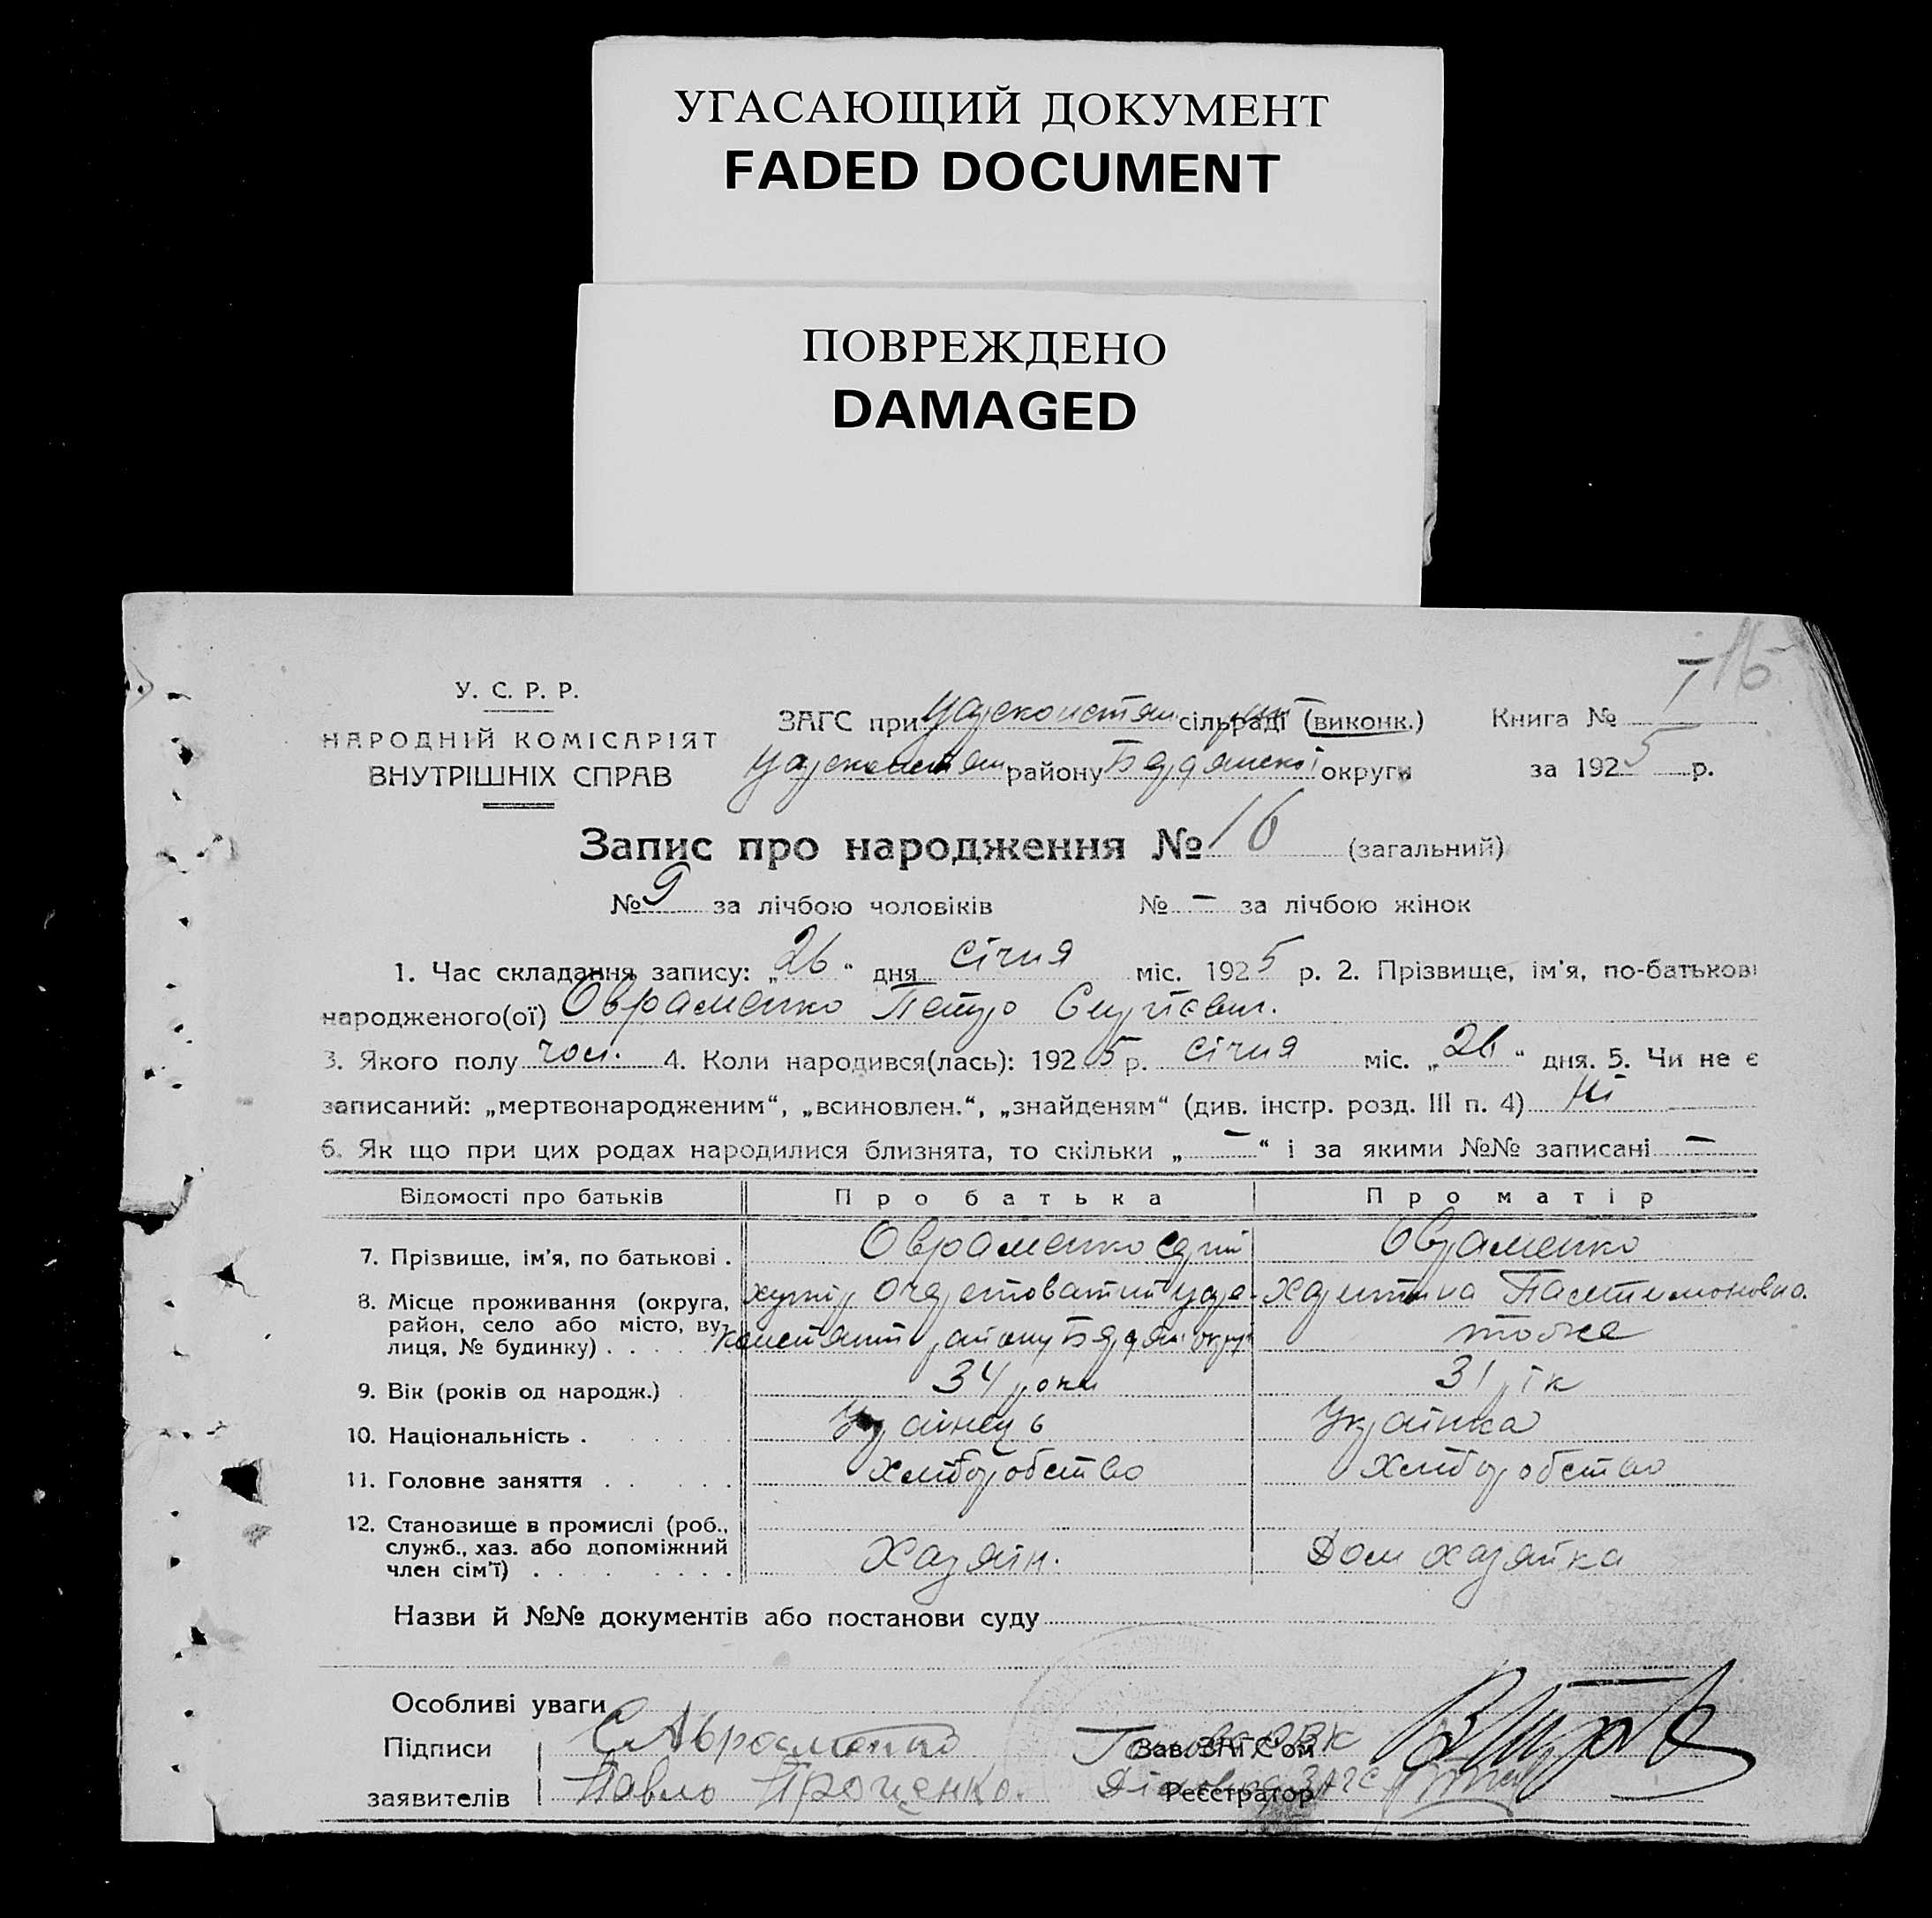 УГАСАЮЩИЙ ДОКУМЕНТ
FADED DOCUMENT
ПОВРЕЖДЕНО
DAMAGED
16
У. С. Р. Р.
НАРОДНІЙ КОМІСАРІЯТ
ВНУТРІШНІХ СПРАВ
ЗАГС при Цареконстян сільраді (виконк.)
Цареконстян району Бердянської округи
Книга № 1
за 1925 р.
Запис про народження № 16 (загальний)
№ 9 за лічбою чоловіків № — за лічбою жінок
1. Час складання запису: „26“ дня січня міс. 1925 р. 2. Прізвище, ім'я, по-батькові
народженого(ої) Овраменко Петро Сергієвич.
3. Якого полу чол. 4. Коли народився(лась): 1925 р. січня міс. „26“ дня. 5. Чи не є
записаний: „мертвонародженим“, „всиновлен.“, „знайденям“ (див. інстр. розд. III п. 4) Ні
6. Як що при цих родах народилися близнята, то скільки „—“ і за якими №№ записані —
Відомості про батьків Про батька Про матір
7. Прізвище, ім'я, по батькові . Овраменко Сергій Овраменко
8. Місце проживання (округа, хутір Царе- Харитина Пантилимоновна.
район, село або місто, ву- констянт району Бердян округ тоже
лиця, № будинку) . . . .
9. Вік (років од народж.) . 34 роки 31 рік
10. Національність . Українець Українка
11. Головне заняття . . Хліборобство Хліборобство
12. Становище в промислі (роб.,
служб., хаз. або допоміжний Хазяїн. Дом хазяйка
член сім'ї) . . . .
Назви й №№ документів або постанови суду
Особливі уваги
Підписи С Авраменко Голова РВК Зав. ЗАГС'ом
заявителів Павло Проценко. Діловод ЗАГС Реєстратор